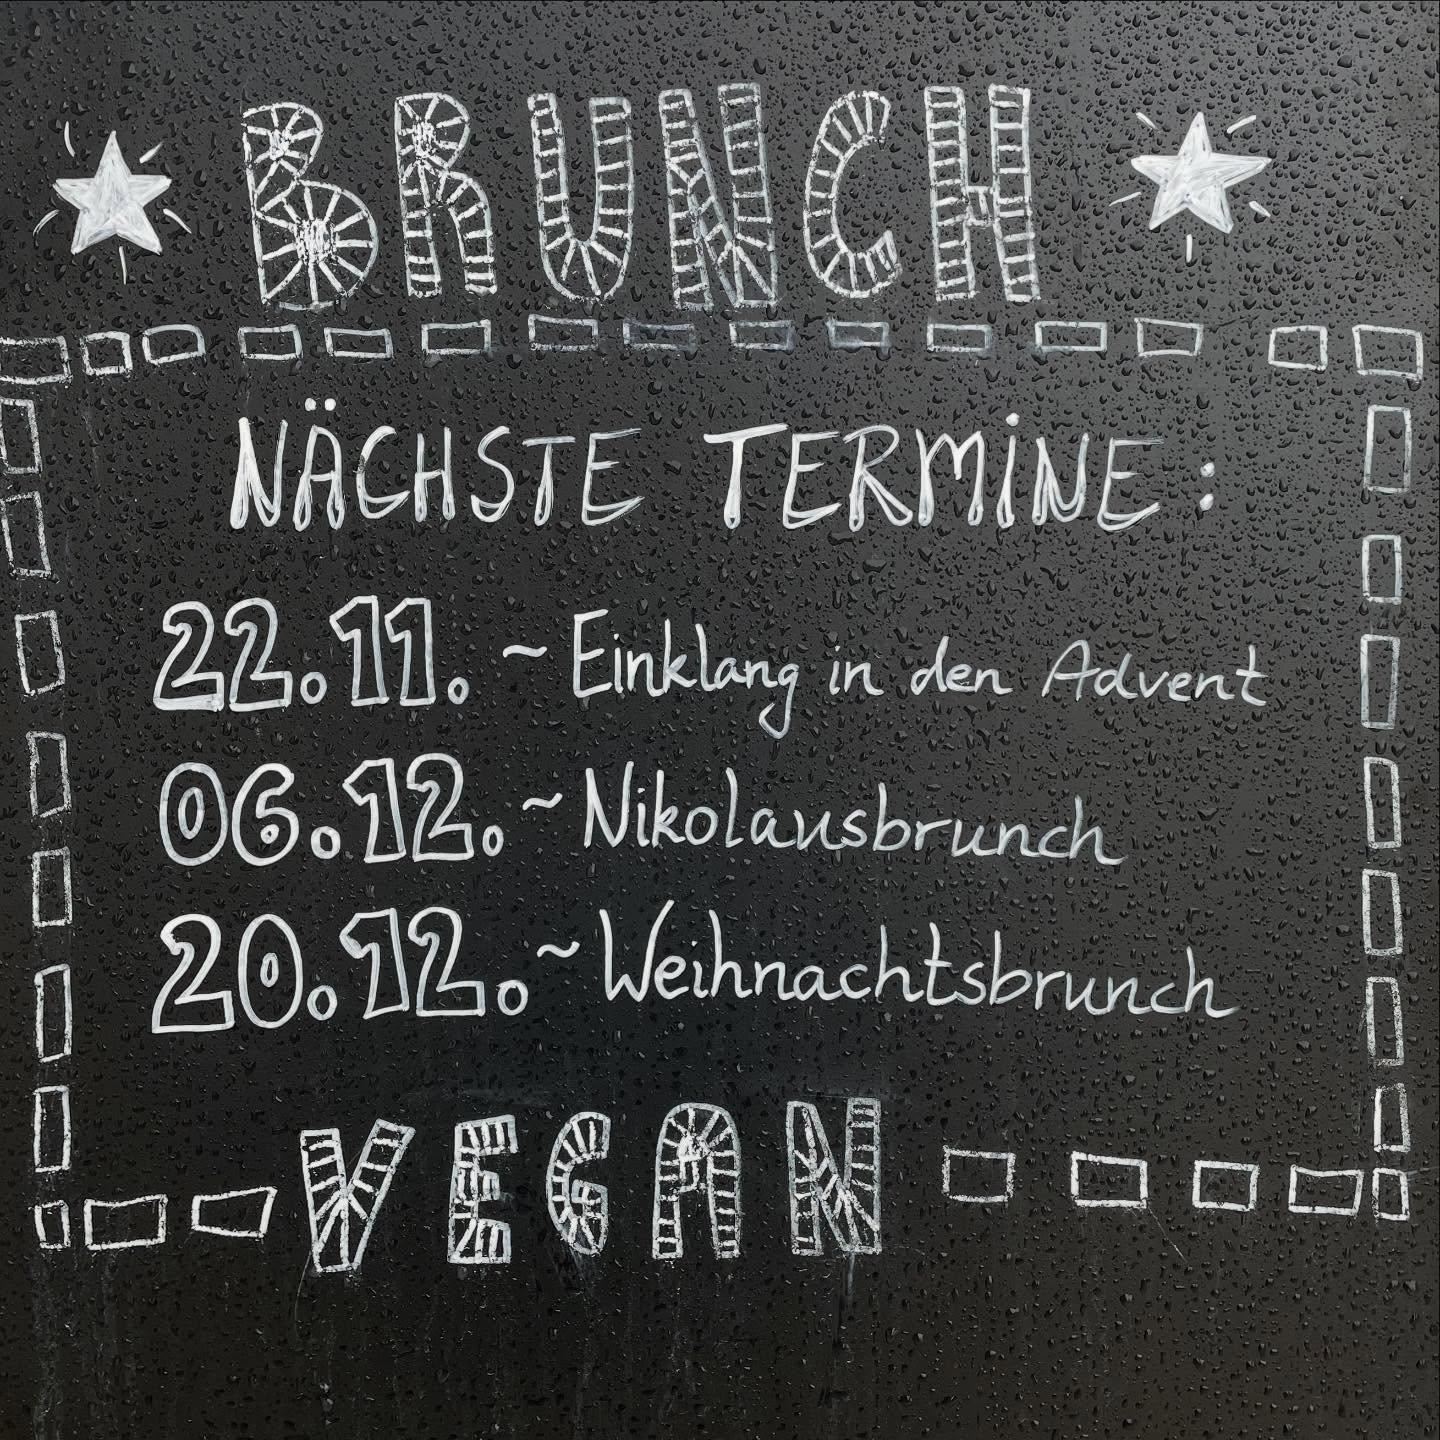 BRUNCH
NÄCHSTE TERMINE:
22.11. ~ Einklang in den Advent
06.12. ~ Nikolausbrunch
20.12. ~ Weihnachtsbrunch
VEGAN